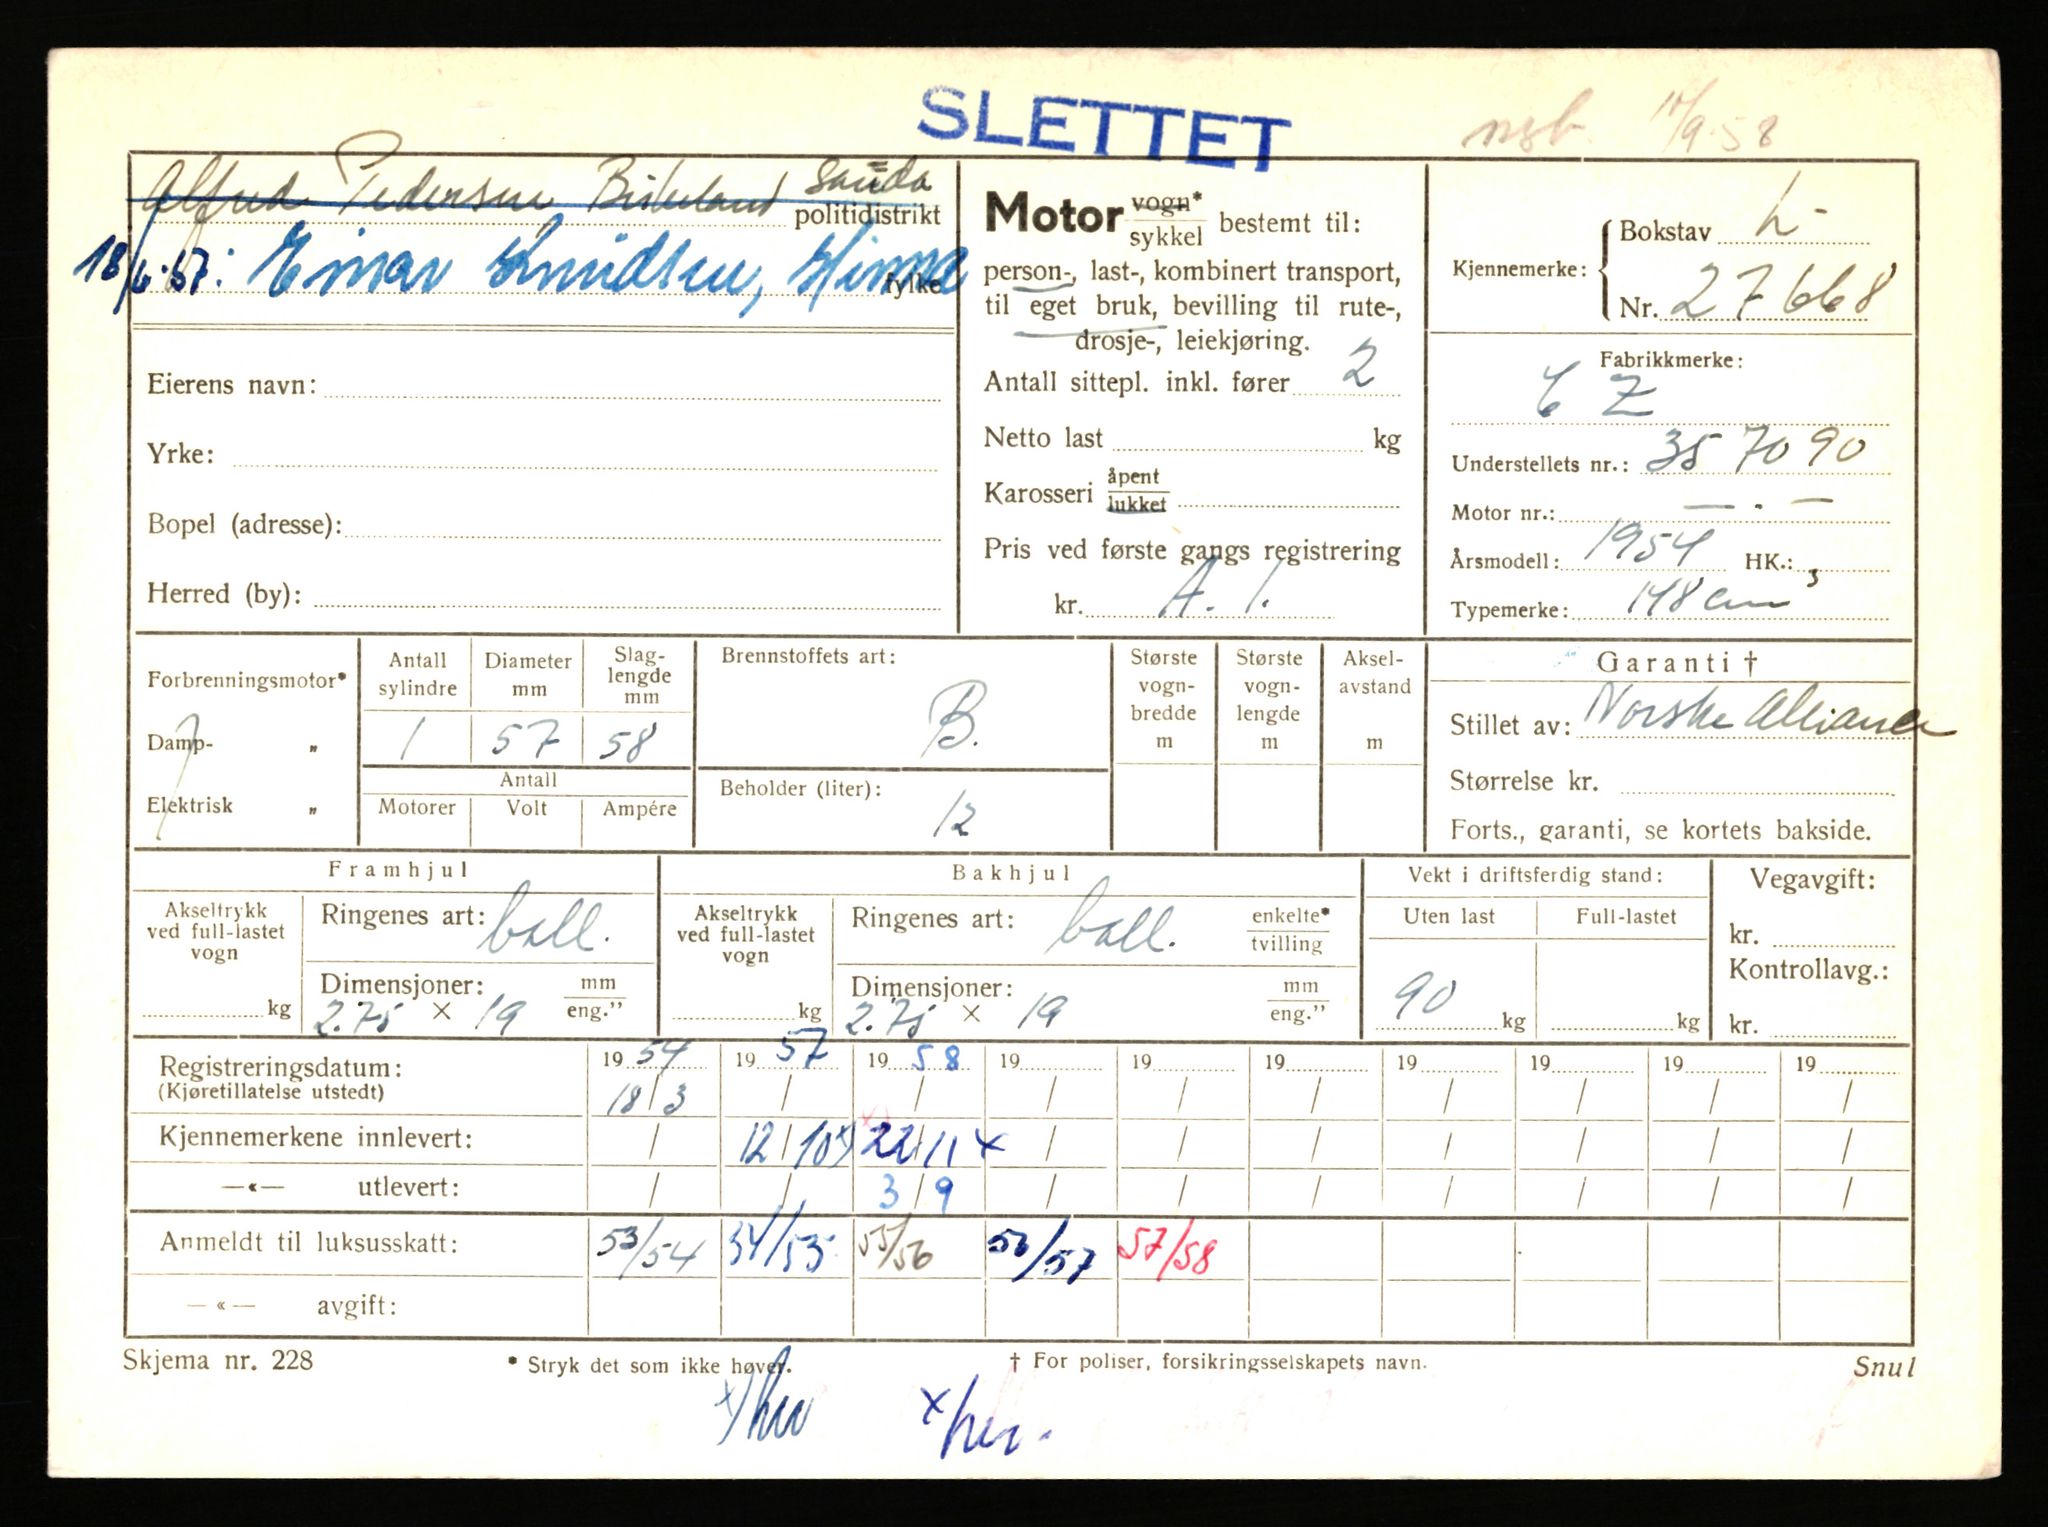 SLETTET
nsb. 17/9-58
Alfred Pedersen Birkeland Sauda politidistrikt
18/6-57: Einar Knudsen, Hinna fylke
Eierens navn:
Yrke:
Bopel (adresse):
Herred (by):
Motor vogn* / sykkel bestemt til:
person-, last-, kombinert transport,
til eget bruk, bevilling til rute-,
drosje-, leiekjøring.
Antall sittepl. inkl. fører 2
Netto last kg
Karosseri åpent / lukket
Pris ved første gangs registrering
kr. A. I.
Kjennemerke: Bokstav L-
Nr. 27668
Fabrikkmerke:
C Z
Understellets nr.: 357090
Motor nr.: — . —
Årsmodell: 1954 HK.:
Typemerke: 148 cm³
Forbrenningsmotor*
Damp- „
Elektrisk „
Antall sylindre 1
Diameter mm 57
Slaglengde mm 58
Antall
Motorer Volt Ampére
Brennstoffets art: B.
Beholder (liter): 12
Største vognbredde m
Største vognlengde m
Akselavstand m
Garanti †
Stillet av: Norske Alliance
Størrelse kr.
Forts., garanti, se kortets bakside.
Framhjul
Akseltrykk ved full-lastet vogn kg
Ringenes art: ball.
Dimensjoner: mm / eng."
2.75 × 19
Bakhjul
Akseltrykk ved full-lastet vogn kg
Ringenes art: ball. enkelte* / tvilling
Dimensjoner: mm / eng."
2.75 × 19
Vekt i driftsferdig stand:
Uten last Full-lastet
90 kg kg
Vegavgift:
kr.
Kontrollavg.:
kr.
Registreringsdatum: 19 54 19 57 19 58 19 19 19 19 19 19 19
(Kjøretillatelse utstedt) 18/3 / / / / / / / / /
Kjennemerkene innlevert: / 12/10 x) 22/11 x / / / / / / /
—«— utlevert: / / 3/9 / / / / / / /
Anmeldt til luksusskatt: 53/54 54/55 55/56 56/57 57/58
—«— avgift:
Skjema nr. 228 * Stryk det som ikke høver. † For poliser, forsikringsselskapets navn. Snul
x)hev x/hev.